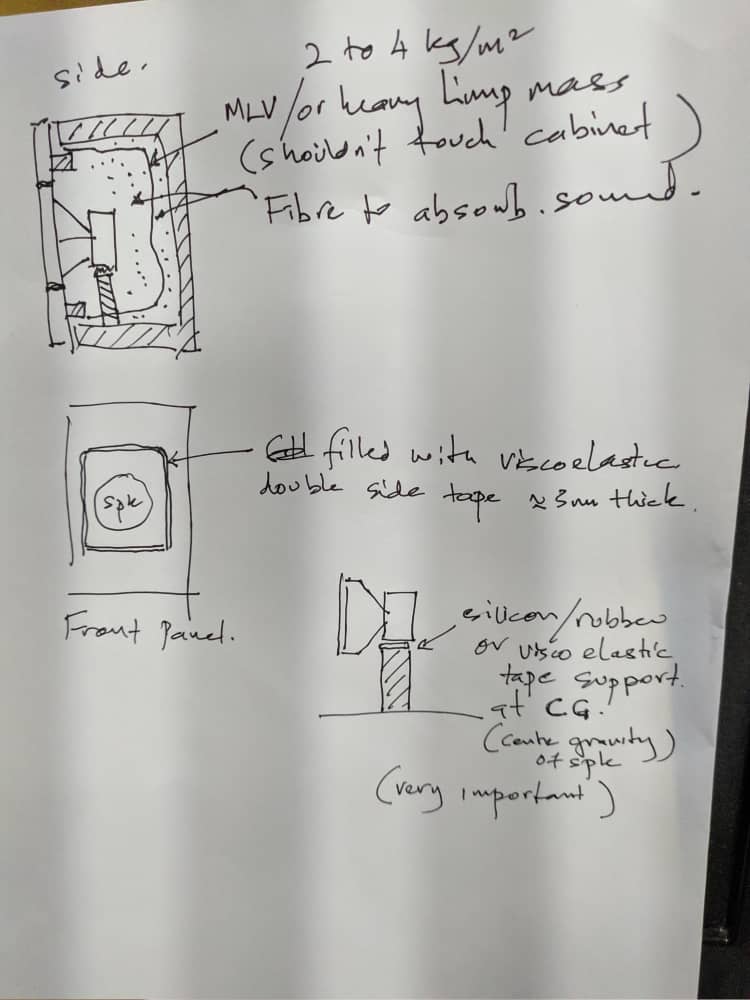 side.
2 to 4 kg/m²
MLV/or heavy limp mass
(shouldn't touch cabinet)
Fibre to absorb. sound.
spk
filled with viscoelastic
double side tape ≈ 3mm thick.
Front Panel.
silicon/rubber
or visco elastic
tape support.
at CG.
(centre gravity)
of spk
(very important)